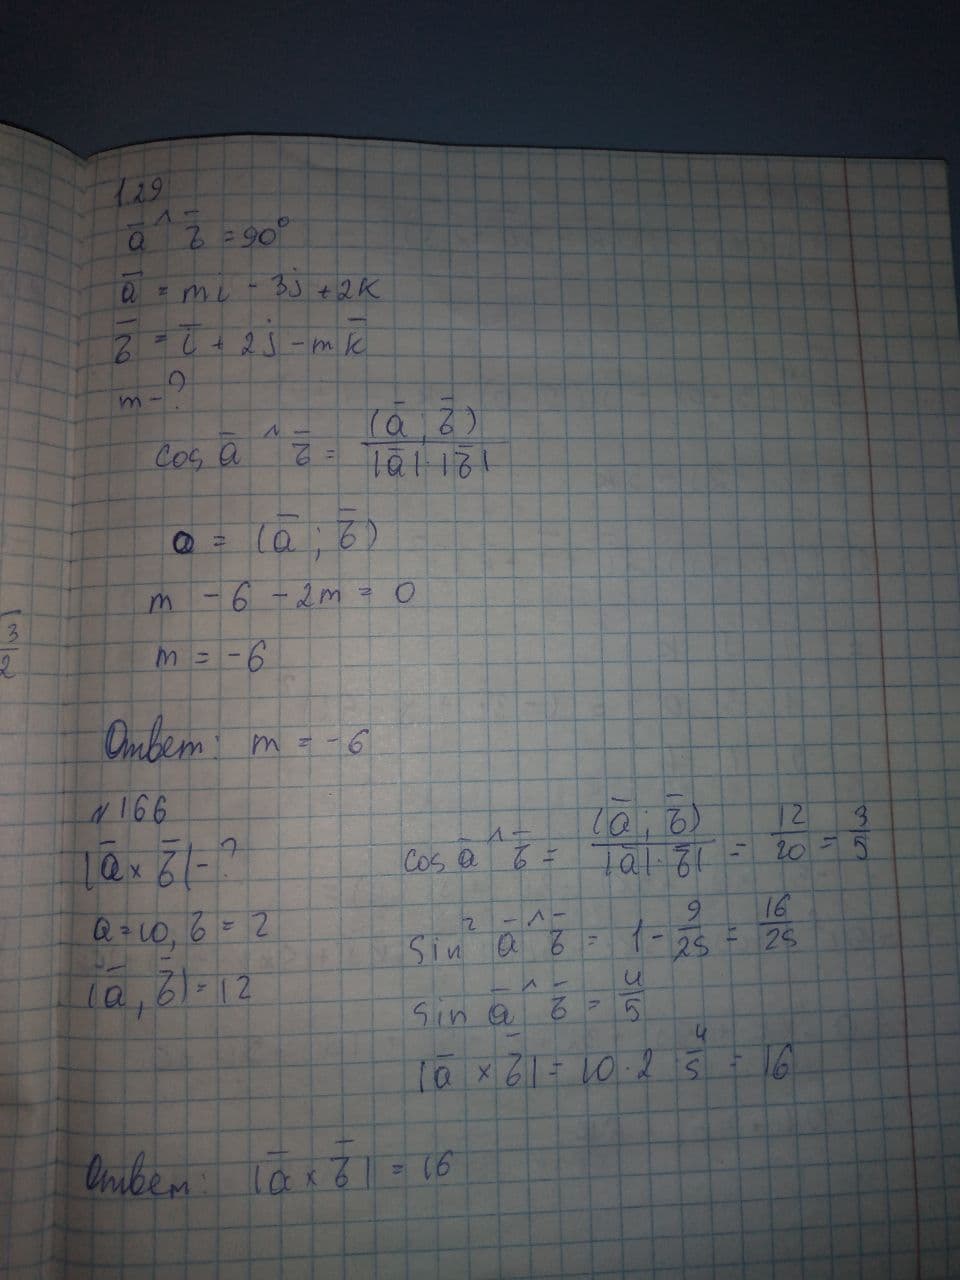 129
a̅ ^ b̅ = 90°
a̅ = mi - 3j + 2k
b̅ = i̅ + 2j - m k̅
m - ?
cos a̅ ^ b̅ = (a̅ ; b̅) / |a̅| · |b̅|
0 = (a̅ ; b̅)
m - 6 - 2m = 0
m = -6
Ответ: m = -6
№166
|a̅ × b̅| - ?
a = 10, b = 2
(a̅, b̅) = 12
cos a̅ ^ b̅ = (a̅ ; b̅) / |a̅| · b̅| = 12/20 = 3/5
sin² a̅ ^ b̅ = 1 - 9/25 = 16/25
sin a̅ ^ b̅ = 4/5
|a̅ × b̅| = 10 · 2 4/5 = 16
Ответ: |a̅ × b̅| = 16
3/2